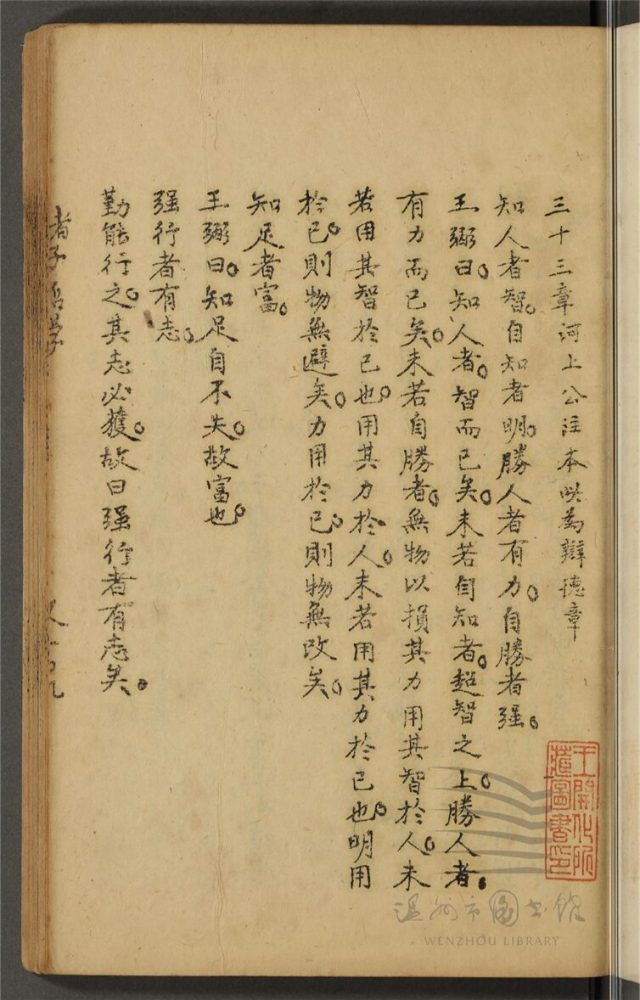 三十三章河上公注本以為辯德章
知人者智。自知者明。勝人者有力。自勝者强。
王弼曰。知人者。智而已矣。未若自知者。超智之上。勝人者。
有力而已矣。未若自勝者。無物以損其力用其智於人。未
若用其智於己也。用其力於人。未若用其力於己也。明用
於己。則物無避矣。力用於己。則物無改矣。
知足者富。
王弼曰。知足自不失。故富也。
强行者有志。
勤能行之。其志必獲。故曰强行者有志矣。
王開化所
藏圖書印
温州市圖書館
WENZHOU LIBRARY